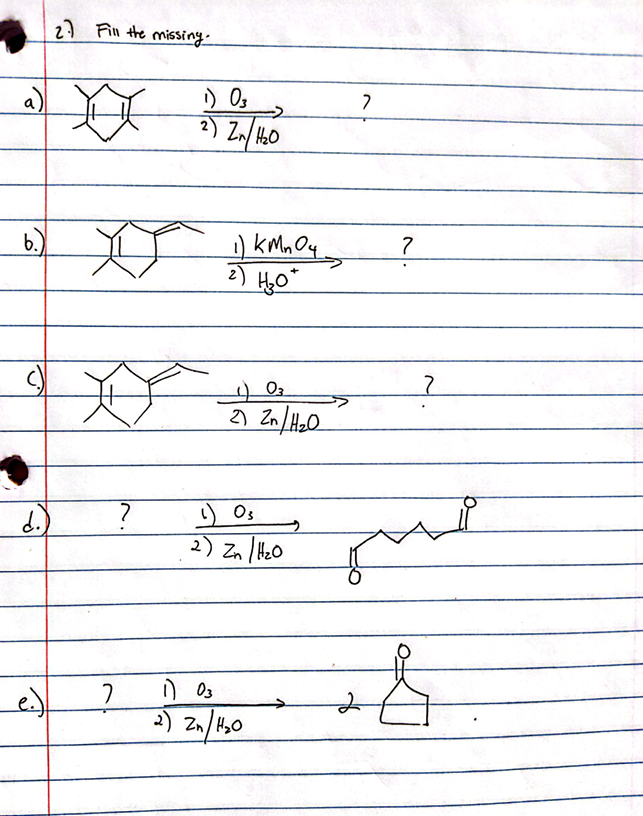 2.) Fill the missing.
a.) 1) O₃ ?
2) Zn/H₂O
b.) 1) KMnO₄ ?
2) H₃O⁺
c.) 1) O₃ ?
2) Zn/H₂O
d.) ? 1) O₃ O
2) Zn/H₂O
O
O
e.) ? 1) O₃ 2
2) Zn/H₂O